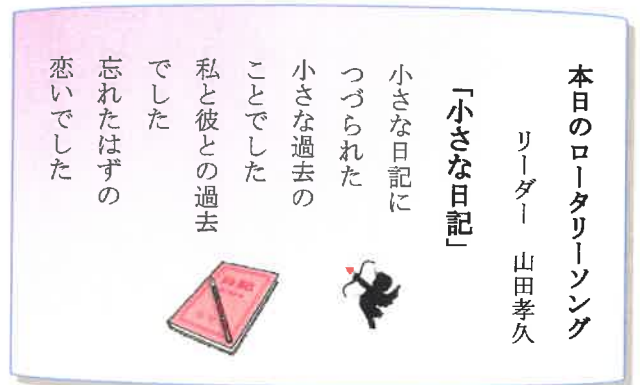 本日のロータリーソング
リーダー　山田孝久
「小さな日記」
小さな日記に
つづられた
小さな過去の
ことでした
私と彼との過去
でした
忘れたはずの
恋いでした
日記